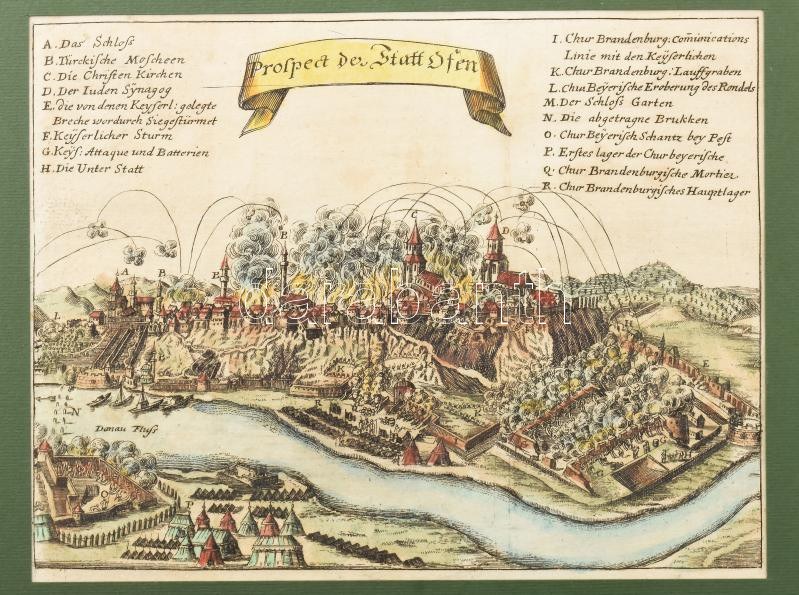 Prospect der Statt Ofen
A. Das Schloß
B. Türckische Moscheen
C. Die Christen Kirchen
D. Der Iuden Synagog
E. die von denen Keyserl: gelegte
Breche wordurch Siegestürmet
F. Keyserlicher Sturm
G. Keys: Attaque und Batterien
H. Die Unter Statt
I. Chur Brandenburg: Com̄unications
Linie mit den Keyserlichen
K. Chur Brandenburg: Lauffgraben
L. Chur Beyerische Eroberung des Rondels
M. Der Schloß Garten
N. Die abgetragne Brukken
O. Chur Beyerisch Schantz bey Pest
P. Erstes lager der Churbeyerische
Q. Chur Brandenburgische Mortier
R. Chur Brandenburgisches Hauptlager
A
B
B
E
C
D
L
K
E
N
Donau Fluss
O
darabanth